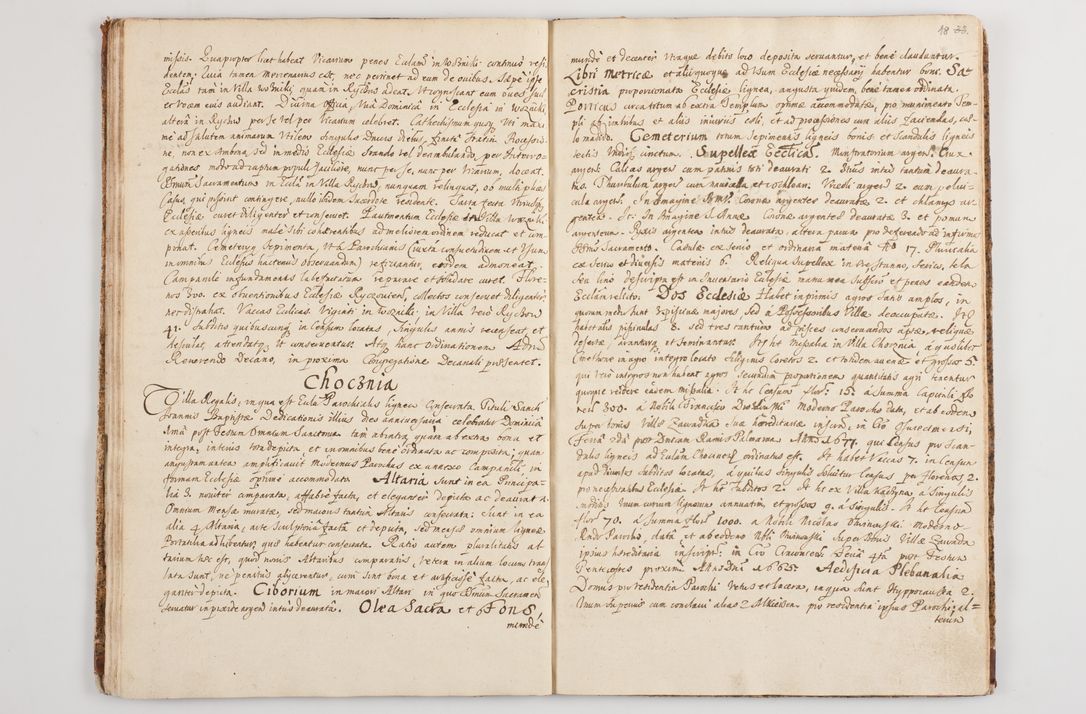 missis. Quapropter licet habeat Vicarium penes Eculam in Wozniki continuo resi-
dentem: Quia tamen Mercenarius est, nec pertinet ad eum de ovibus. Sæpe ipse
Eculas tam in Villa Wozniki, quam in Ryczow adeat. Ut cognoscant eum oves suæ
et vocem eius audiant. Divina officia, una Dominica in Ecclesia in Wozniki
altera in Ryczow per se vel per Vicarium celebret. Cathechismum quoq. uti maxi-
me ad salutem animarum utilem singulis
ne, non ex Ambona, sed in medio Ecclesiæ stando vel deambulando, per Interro-
gationes modo ad captum populi faciliore, nunc per se, nunc per Vicarium, doceat.
Sacramentum in Ecula in Villa Ryczow, nunquam relinquat, ob multiplices
Casus, qui possint contingere, nullo ibidem Sacerdote residente. Sarta tecta utriusq.
Ecclesiæ curet diligenter et conservet. Pavimentum Ecclesiæ in Villa Wozniki
ex asseribus ligneis male sibi cohærentibus ad meliorem ordinem redicat et com-
ponat. Cemeterij sepimenta, ut à Parochianis (iuxta consuetudinem et usum
in omnibus Ecclesijs hactenus observandum) reficiantur, eosdem admoneat.
Campanile in fundamentis labefactatum reparare et solidare curet. Flore-
nos 300. ex obventionibus Ecclesiæ Ryczoviensi, collectos conservet diligenter
nec distrahat. Vaccas Eculicas Viginti in Wozniki: in Villa vero Ryczow
41. Subditis quibuscunq. in Censum locatas, singulis annis recenseat, et
attendat, ut conserventur. Atq. hanc Ordinationem
Reverendo Decano, in proxima Congregatione Decanali præsentet.
Chocznia
Villa Regalis, in qua est Ecula Parochialis lignea Consecrata Tituli Sancti
Joannis Baptistæ. Dedicationis illius dies anniversaria celebratur Dominica
post Festum Omnium Sanctorum tam ab intra, quam ab extra bona et
integra, interius tota depicta, et in omnibus bene ordinata ac composita; quam
angustam antea amplificavit Modernus Parochus ex annexo Campanili in
formam Ecclesiæ optime accommodato. Altaria sunt in ea Principa-
lia 3. noviter comparata, affabre facta, et eleganter depicta ac deaurata.
Omnium Mensæ muratæ, sed maioris tantum Altaris consecrata: sunt in ea
alia 4 Altaria, arte Sculptoria facta et depicta, sed mensis omnium ligneæ
Portatilia adhibentur, quæ habentur consecrata. Ratio autem pluralitatis al-
tarium hæc est, quod novis Altaribus comparatis, vetera in alium locum trans-
lata sunt, ne penitus abijcerentur, cum sint bona et artificiose facta, ac ele-
ganter depicta. Ciborium in maiori Altari in quo Divinum Sacramentum
servatur in pixide argent. intus deaurata. Olea Sacra et Fons,
munde
18
munde et decenter utraque debito loco deposita servantur, et bene clauduntur.
Libri Metricæ et alij quoque ad Usum Ecclesiæ necessarij habentur boni. Sa-
cristia proportionata Ecclesiæ lignea, angusta quidem, bene tamen ordinata.
Porticus circa titum ab extra Templum optime accommodatæ, pro munimento Tem-
pli ab imbribus et alijs iniurijs cœli, et ad processiones cum alijs faciendas, cul-
lo Cemeterium totum sepimentis ligneis bonis et scandulis ligneis
tectis undiq. cinctum. Supellex Ecclica. Monstratorium argent. Crux
argent. Calices argent. cum patenis toti deaurati 2. Alius intus tantum deaura-
tus. Thuribulum argent. cum navicella et cochleari. Urceoli argent. 2. cum pelvi-
cula argent. In Imagine Coronæ argenteæ deauratæ 2. et chlamys ar-
gentea. It: In Imagine S. Annæ Coronæ argenteæ deauratæ 3. et pomum
argenteum. Pyxis argentea intus deaurata, altera parva pro deferendo ad infirmos
Sacramento. Casulæ ex serico et ordinaria materia No 17. Pluvialia
ex serico et diversis materijs 6. Reliqua Supellex in Ære, stanno, serico, tela
seu lino descripta est in Inventario Ecclesiæ manu mea subscripto et penes eandem
Ecclam relicto. Dos Ecclesiæ. Habet in primis agros satis amplos, in
quorum medio sunt 3 piscinæ majores sed à Possessoribus Villæ deoccupatæ. It.
habet alias piscinulas 8. sed tres tantum ad pisces conservandos aptæ, reliquæ
desertæ, arantur et seminantur. It. habet Missalia in Villa Chocznia à quolibet
Cmethone in agro integro locato siliginis coretos 2. et totidem avenæ et grossos 5.
qui vero integros non habent agros, secundum proportionem quantitatis agri tenentur
quoque reddere eadem missalia. It. ht Censum flor. 15 à Summa capitali flo-
ren. 300. à Nobili Francisco Moderno Parocho data, et ab eodem
super bonis Villæ Zawadka sua hæreditaria inscr. in Cro Osviecimensi,
Feria post Dnicam Ramis Palmarum Anno 1677. qui Census pro scan-
dalis ligneis ad Eculam Chocznen. ordinatus est. It. habet Vaccas 7. in Censum
apud diversos subditos locatas, à quibus singulis solvitur Census per florenos 2.
pro necessitatibus Ecclesiæ. It. ht Subditos 2. It. ht ex Villa Kaczyna à singulis
unum currum lignorum annuatim, et grossos 9. à singulis. It. ht Censum
flor. 70. à Summa flor. 1000. à Nobili Nicolao moderno
Rndo Parocho, data et ab eodem super bonis Villæ Zawadka
ipsius hæreditaria inscript. in Cro Cracovien. Feria 4ta post Festum
Pentecostes proxim. Anno Dni 1662. Aedificia Plebanalia
Domus pro residentia Parochi vetus et lacera, in qua sunt Hyppocausta 2.
Unum superius cum conclavi alias z Alkierzem, pro residentia ipsius Parochi, al-
terum